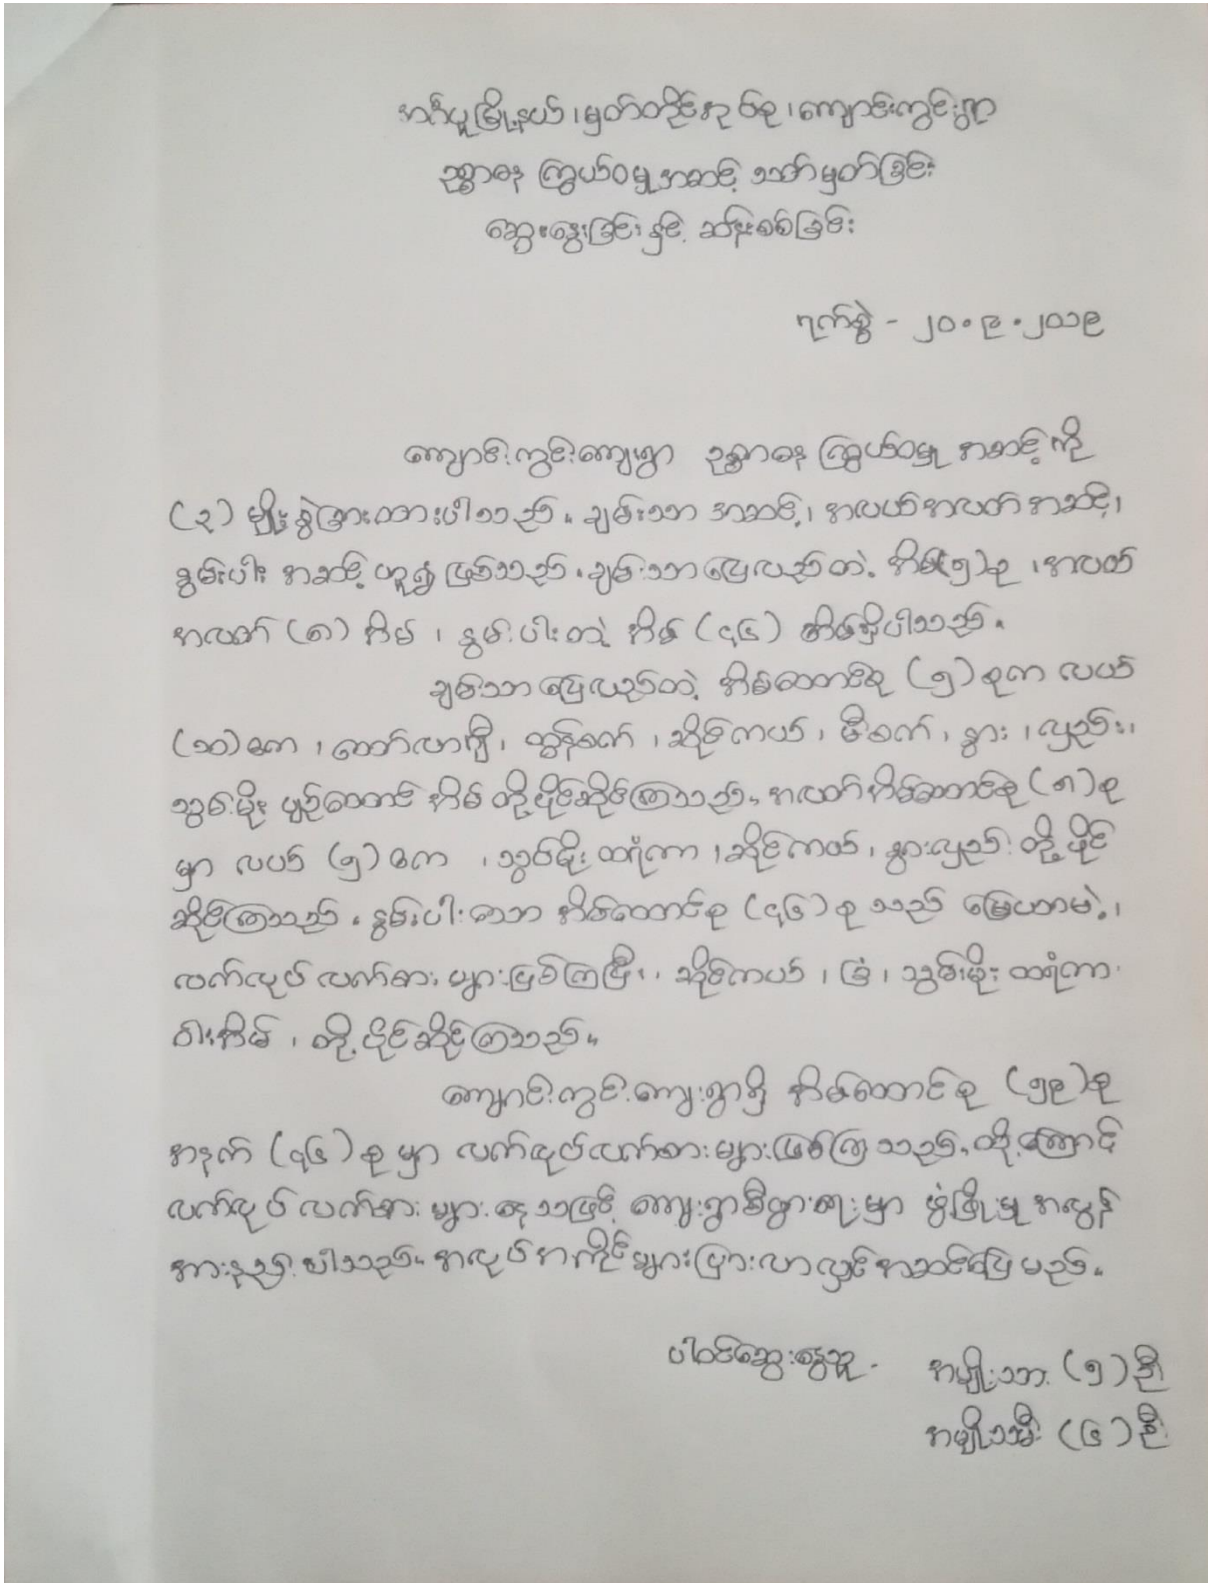 အင်္ဂပူမြို့နယ်၊ မှတ်တိုင်အုပ်စု၊ ကျောင်းကွင်းရွာ
ဥစ္စာဓန ကြွယ်ဝမှုအဆင့် သတ်မှတ်ခြင်း
ဆွေးနွေးခြင်းနှင့် ဆန်းစစ်ခြင်း
ရက်စွဲ - ၂၀.၉.၂၀၁၉
ကျောင်းကွင်းကျေးရွာ ဥစ္စာဓန ကြွယ်ဝမှု အဆင့်ကို
(၃) မျိုးခွဲခြားထားပါသည်။ ချမ်းသာ အဆင့်၊ အလယ်အလတ် အဆင့်၊
နွမ်းပါး အဆင့် ဟူ၍ ဖြစ်သည်။ ချမ်းသာပြေလည်တဲ့ အိမ်(၅)စု ၊ အလတ်
အလတ် (၈) အိမ် ၊ နွမ်းပါးတဲ့ အိမ် (၄၆) အိမ်ရှိပါသည်။
ချမ်းသာပြေလည်တဲ့ အိမ်ထောင်စု (၅) စုက လယ်
(၁၀)ဧက ၊ ထော်လာဂျီ၊ ထွန်စက် ၊ ဆိုင်ကယ် ၊ မီးစက် ၊ နွား ၊ လှည်း၊
သွပ်မိုး ပျဉ်ထောင် အိမ် တို့ပိုင်ဆိုင်ကြသည်။ အလတ်အိမ်ထောင်စု (၈) စု
မှာ လယ် (၅) ဧက ၊ သွပ်မိုး ထရံကာ ၊ ဆိုင်ကယ် ၊ နွားလှည်း တို့ပိုင်
ဆိုင်ကြသည်။ နွမ်းပါးသော အိမ်ထောင်စု (၄၆) စု သည် မြေယာမဲ့၊
လက်လုပ် လက်စား များဖြစ်ကြပြီး၊ ဆိုင်ကယ် ၊ ခြံ ၊ သွပ်မိုး ထရံကာ
ဝါးအိမ် ၊ တို့ ပိုင်ဆိုင်ကြသည်။
ကျောင်းကွင်းကျေးရွာရှိ အိမ်ထောင်စု (၅၉)စု
အနက် (၄၆) စု မှာ လက်လုပ်လက်စားများဖြစ်ကြသည်။ ထို့ကြောင့်
လက်လုပ် လက်စား များနေသဖြင့် ကျေးရွာစီးပွားရေးမှာ ဖွံ့ဖြိုးမှု အလွန်
အားနည်းပါသည်။ အလုပ်အကိုင်များပြားလာလျှင် အဆင်ပြေမည်။
ပါဝင်ဆွေးနွေးသူ - အမျိုးသား (၅) ဦး
အမျိုးသမီး (၆) ဦး